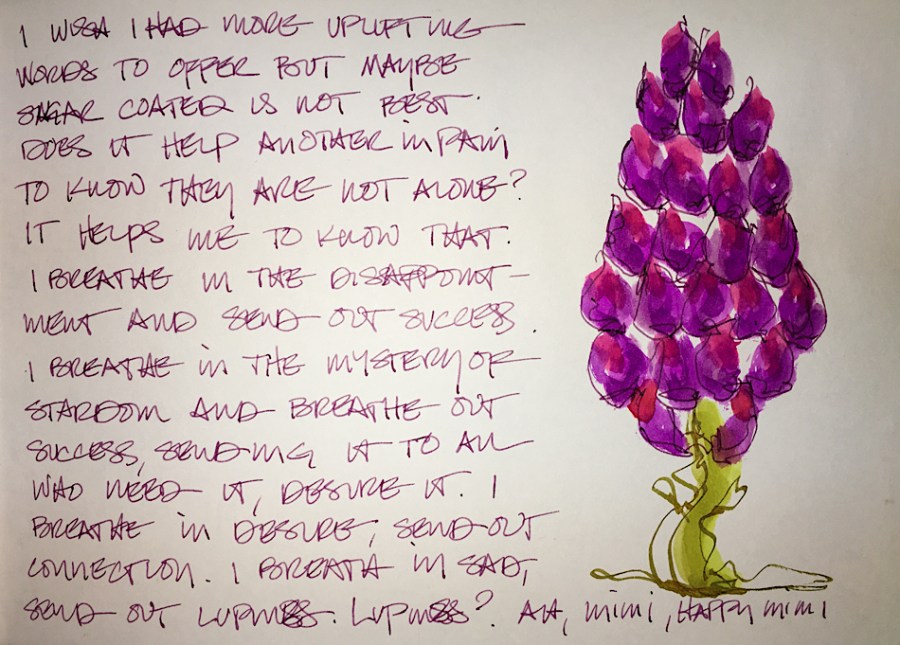 I WISH I HAD MORE UPLIFTING
WORDS TO OFFER BUT MAYBE
SUGAR COATED IS NOT BEST.
DOES IT HELP ANOTHER IN PAIN
TO KNOW THEY ARE NOT ALONE?
IT HELPS ME TO KNOW THAT.
I BREATHE IN THE DISAPPOINT-
MENT AND SEND OUT SUCCESS.
I BREATHE IN THE MYSTERY OF
STARDOM AND BREATHE OUT
SUCCESS, SENDING IT TO ALL
WHO NEED IT, DESIRE IT. I
BREATHE IN DESIRE, SEND OUT
CONNECTION. I BREATH IN SAD,
SEND OUT LUPINESS. LUPINESS? AH, MIMI, HAPPY MIMI